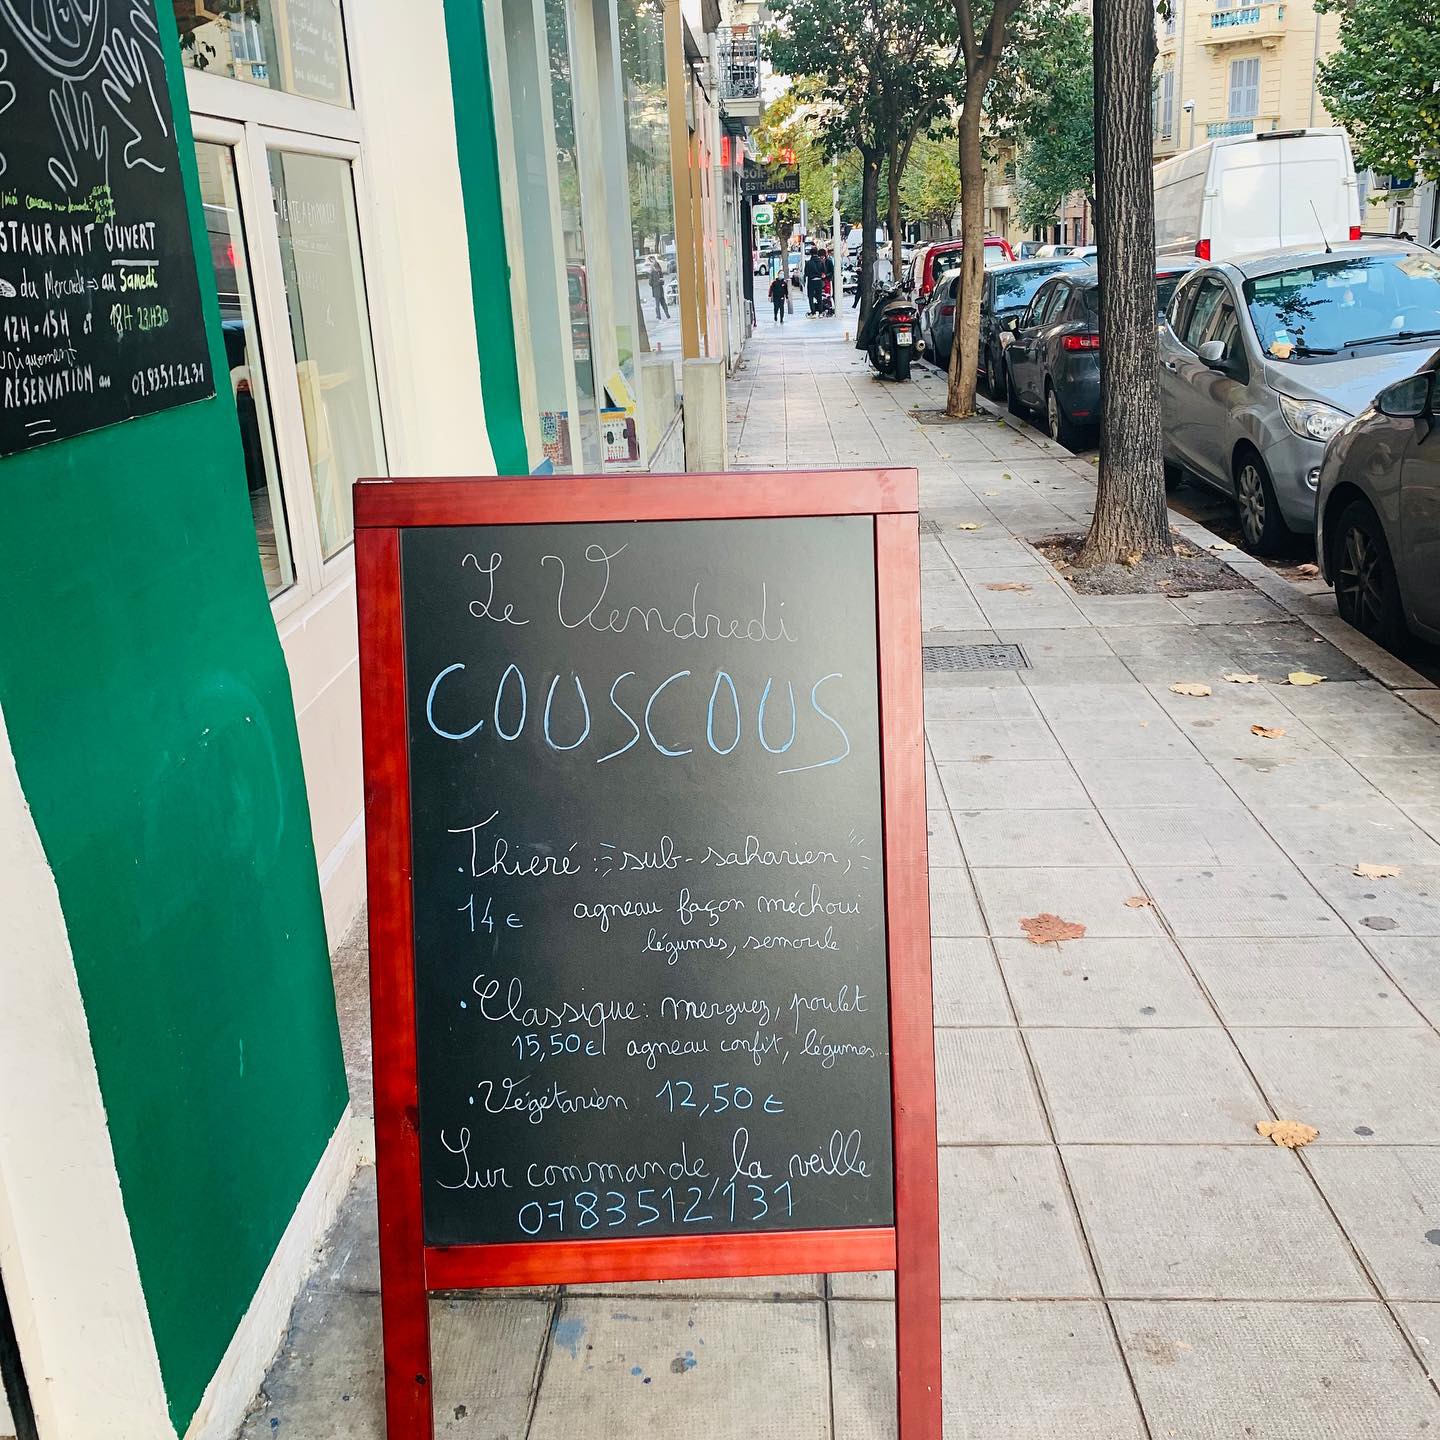 RESTAURANT OUVERT
du Mercredi → au Samedi
12H - 15H et 18H 23H30
Uniquement
RÉSERVATION au 07.83.51.21.31
VENTE A EMPORTER
ESTHETIQUE
Le Vendredi
COUSCOUS
• Thieré : sub-saharien,
14€ agneau façon méchoui
légumes, semoule
• Classique : merguez, poulet
15,50€ agneau confit, légumes...
• Végétarien 12,50 €
Sur commande, la veille
0783512131